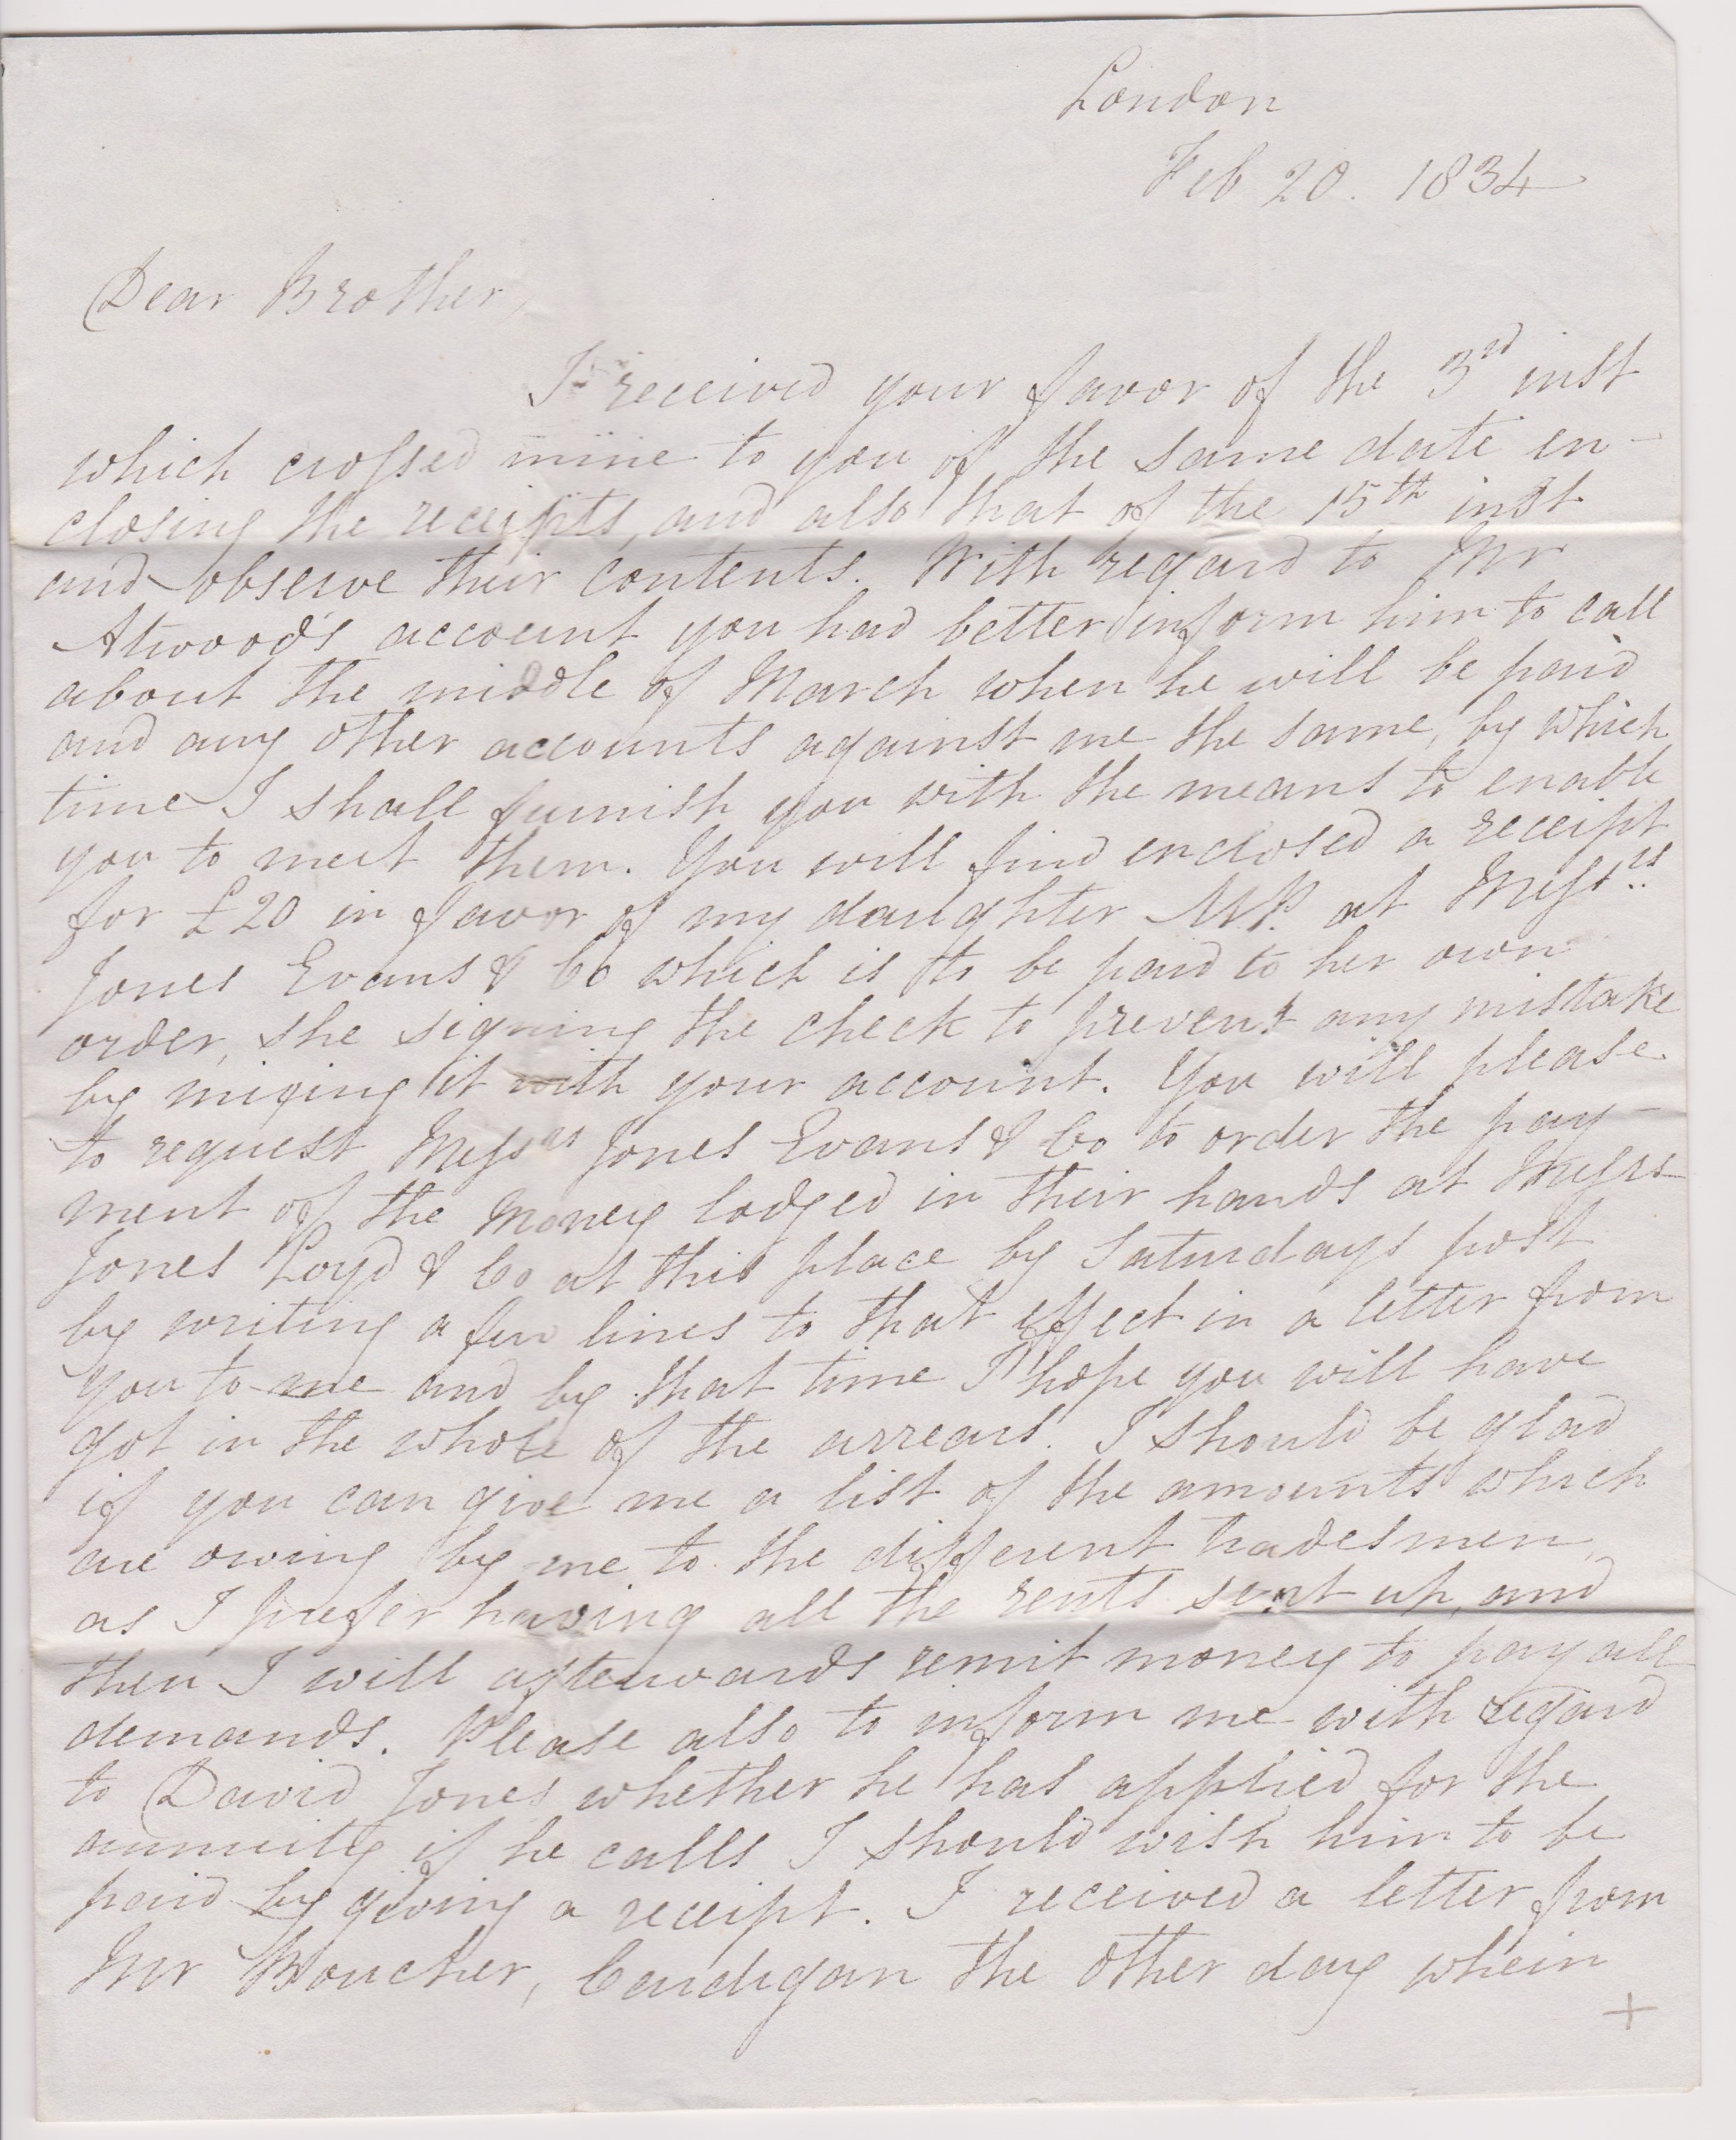 London
Feb 20. 1834
Dear Brother,
I received your favor of the 3rd inst
which crossed mine to you of the same date en-
closing the receipts, and also that of the 15th inst
and observe their contents. With regard to Mr
Atwood's account you had better inform him to call
about the middle of March when he will be paid
and any other accounts against me the same, by which
time I shall furnish you with the means to enable
you to meet them. You will find enclosed a receipt
for £20 in favor of my daughter MP. at Messrs
Jones Evans & Co which is to be paid to her own
order, she signing the check to prevent any mistake
by mixing it with your account. You will please
to request Messrs Jones Evans & Co to order the pay-
ment of the money lodged in their hands at Messrs
Jones Loyd & Co at this place by Saturdays post
by writing a few lines to that effect in a letter from
you to me and by that time I hope you will have
got in the whole of the arrears. I should be glad
if you can give me a list of the amounts which
are owing by me to the different tradesmen,
as I prefer having all the rents sent up, and
then I will afterwards remit money to pay all
demands. Please also to inform me with regard
to David Jones whether he has applied for the
annuity if he calls I should wish him to be
paid by giving a receipt. I received a letter from
Mr Boucher, Cardigan the other day wherin
+